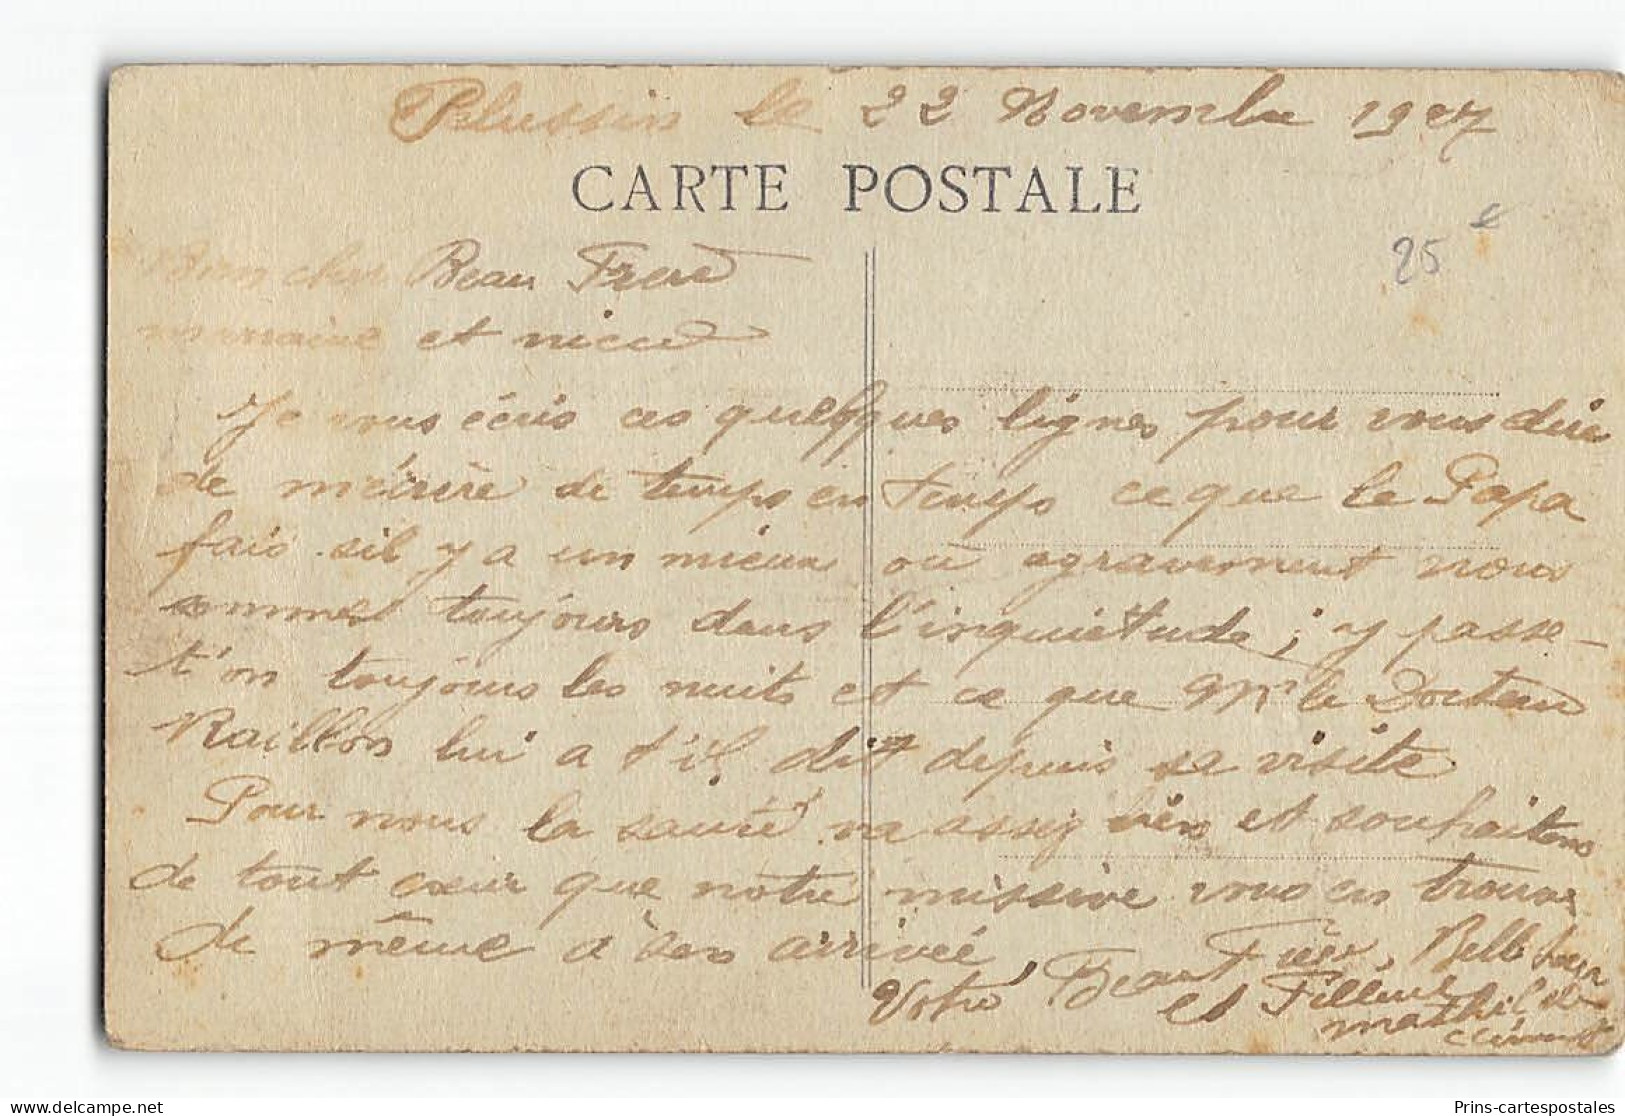 Pelussin le 22 Novembre 1927
CARTE POSTALE
25 €
Bien cher Beau Frere
marraine et niece
Je vous écris ces quelques lignes pour vous dire
de m'écrire de temps en temps ce que le Papa
fais sil y a un mieux ou agravement nous
sommes toujours dans l'inquietude; y passe-
t'on toujours les nuits et ce que Mr le Docteur
Raillon lui a t'il dit depuis sa visite
Pour nous la santé va assez bien et souhaitons
de tout cœur que notre missive vous en trouve
de même à son arrivée
Votre Beau Frère, Belle Sœur
et Filleule
Mathilde
Clément
Prins-cartespostales